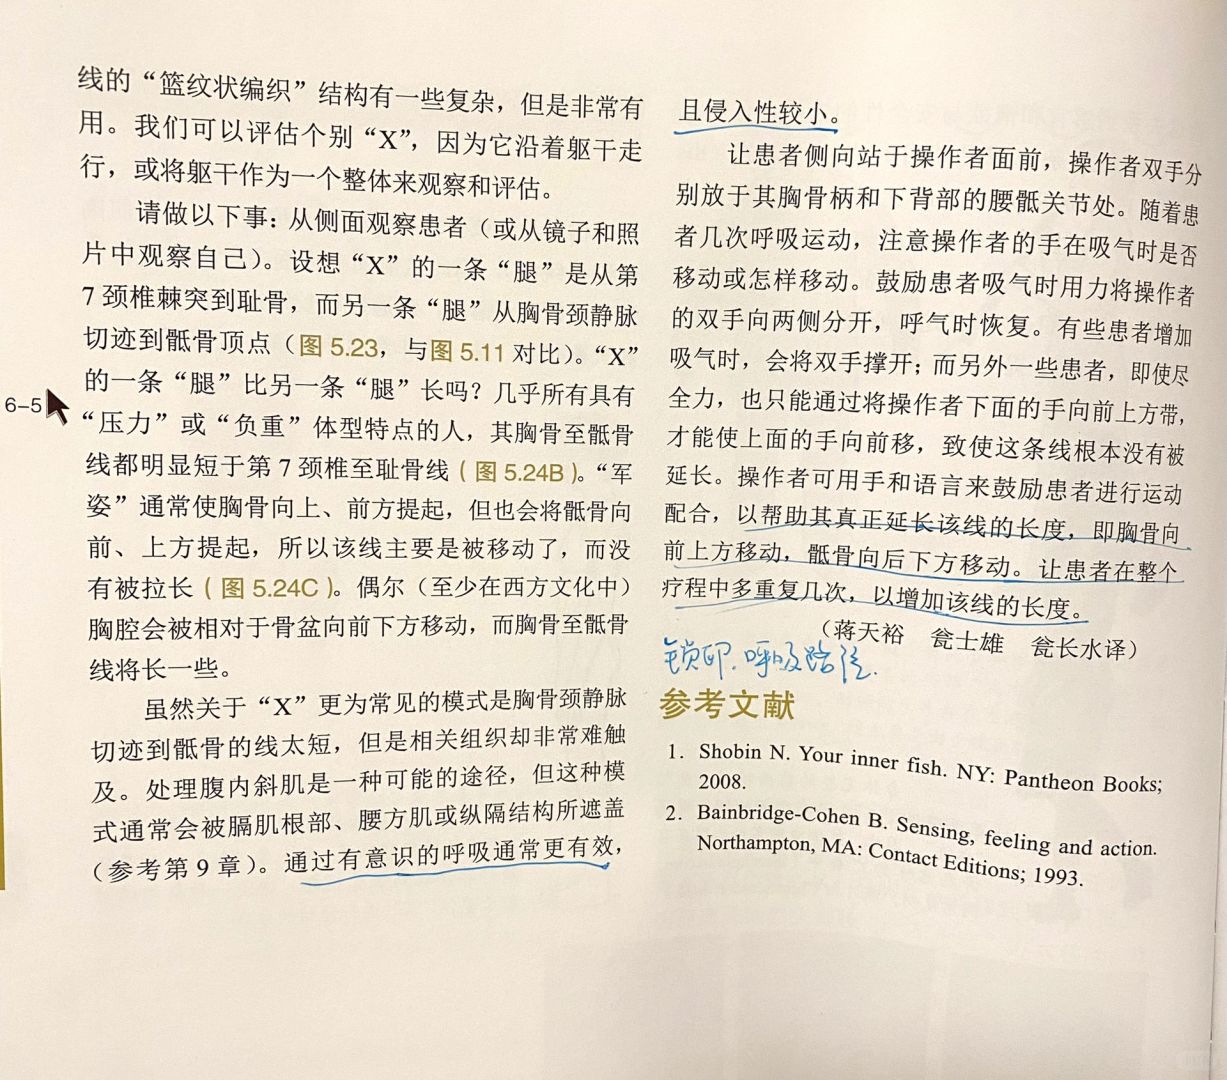 线的“篮纹状编织”结构有一些复杂，但是非常有
用。我们可以评估个别“X”，因为它沿着躯干走
行，或将躯干作为一个整体来观察和评估。
请做以下事：从侧面观察患者（或从镜子和照
片中观察自己）。设想“X”的一条“腿”是从第
7 颈椎棘突到耻骨，而另一条“腿”从胸骨颈静脉
切迹到骶骨顶点（图 5.23，与图 5.11 对比）。“X”
的一条“腿”比另一条“腿”长吗？几乎所有具有
“压力”或“负重”体型特点的人，其胸骨至骶骨
线都明显短于第 7 颈椎至耻骨线（图 5.24B）。“军
姿”通常使胸骨向上、前方提起，但也会将骶骨向
前、上方提起，所以该线主要是被移动了，而没
有被拉长（图 5.24C）。偶尔（至少在西方文化中）
胸腔会被相对于骨盆向前下方移动，而胸骨至骶骨
线将长一些。
虽然关于“X”更为常见的模式是胸骨颈静脉
切迹到骶骨的线太短，但是相关组织却非常难触
及。处理腹内斜肌是一种可能的途径，但这种模
式通常会被膈肌根部、腰方肌或纵隔结构所遮盖
（参考第 9 章）。通过有意识的呼吸通常更有效，
6-5
且侵入性较小。
让患者侧向站于操作者面前，操作者双手分
别放于其胸骨柄和下背部的腰骶关节处。随着患
者几次呼吸运动，注意操作者的手在吸气时是否
移动或怎样移动。鼓励患者吸气时用力将操作者
的双手向两侧分开，呼气时恢复。有些患者增加
吸气时，会将双手撑开；而另外一些患者，即使尽
全力，也只能通过将操作者下面的手向前上方带，
才能使上面的手向前移，致使这条线根本没有被
延长。操作者可用手和语言来鼓励患者进行运动
配合，以帮助其真正延长该线的长度，即胸骨向
前上方移动，骶骨向后下方移动。让患者在整个
疗程中多重复几次，以增加该线的长度。
（蒋天裕 瓮士雄 瓮长水译）
呼吸
参考文献
1. Shobin N. Your inner fish. NY: Pantheon Books;
2008.
2. Bainbridge-Cohen B. Sensing, feeling and action.
Northampton, MA: Contact Editions; 1993.